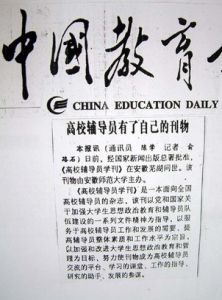 中国教育
CHINA EDUCATION DAILY
高校辅导员有了自己的刊物
本报讯（通讯员 陈学 记者 俞
路石）日前，经国家新闻出版总署批准，
《高校辅导员学刊》在安徽芜湖问世。该
刊物由安徽师范大学主办。
《高校辅导员学刊》是一本面向全国
高校辅导员的杂志，该刊以党和国家关
于加强大学生思想政治教育和辅导员队
伍建设的一系列文件精神为指导，以服
务于高校辅导员工作和发展的需要、提
高辅导员整体素质和工作水平为宗旨，
以加强和改进大学生思想政治教育和管
理为目标，努力使刊物成为高校辅导员
交流的平台、学习的课堂、工作的指导、
研究的助手、发展的参谋。